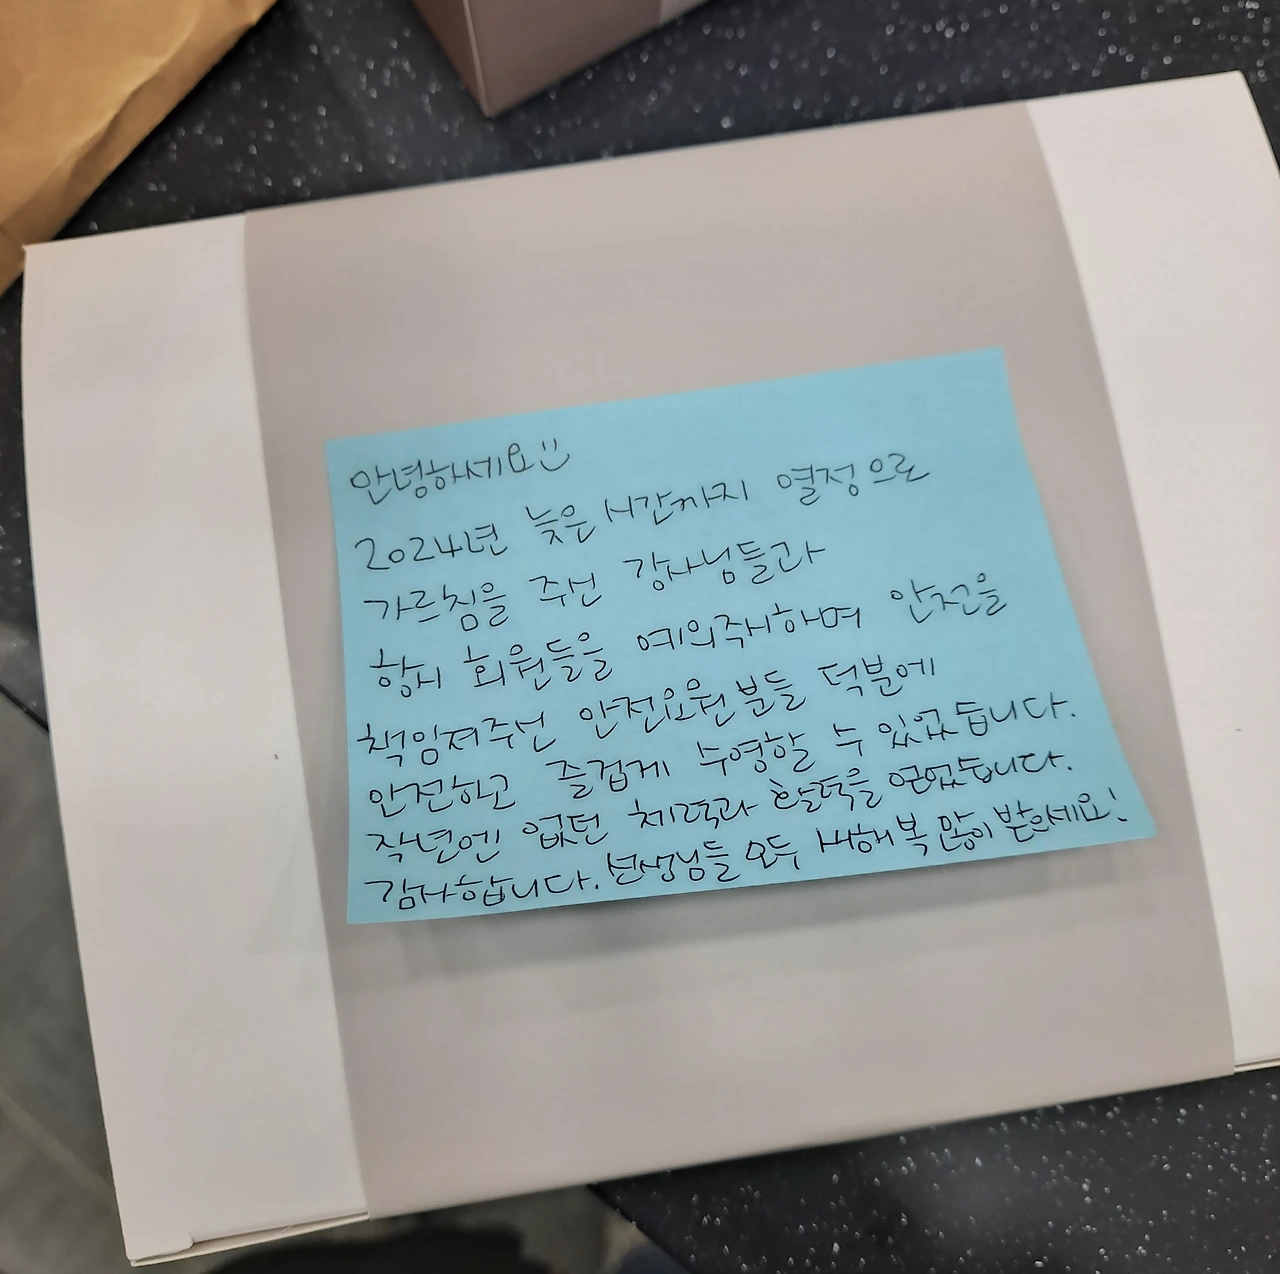 안녕하세요
2024년 늦은 시간까지 열정으로
가르침을 주신 강사님들과
항시 회원들을 예의주시하며 안전을
책임져주신 안전요원분들 덕분에
안전하고 즐겁게 수영할 수 있었습니다.
작년엔 없던 체력과 활력을 얻었습니다.
감사합니다. 선생님들 모두 새해 복 많이 받으세요!